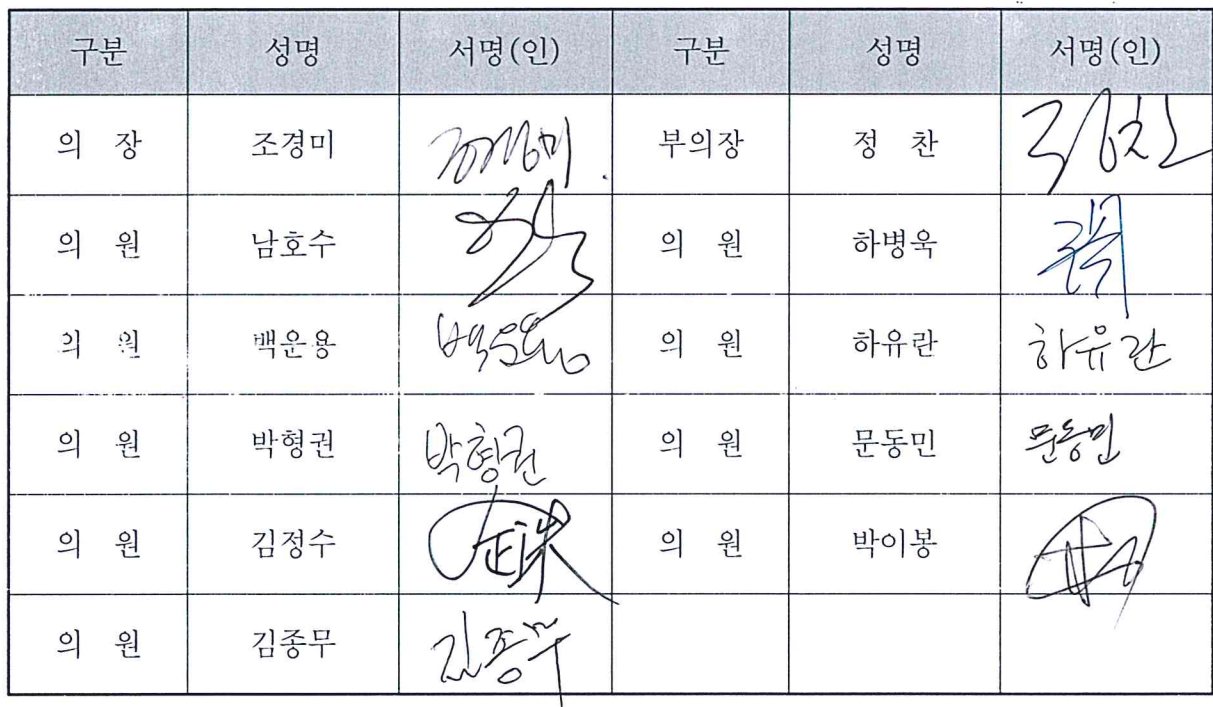 구분 성명 서명(인) 구분 성명 서명(인)
의 장 조경미 조경미 부의장 정 찬 정찬
의 원 남호수 의 원 하병욱
의 원 백운용 백운용 의 원 하유란 하유란
의 원 박형권 박형권 의 원 문동민 문동민
의 원 김정수 의 원 박이봉
의 원 김종무 김종무